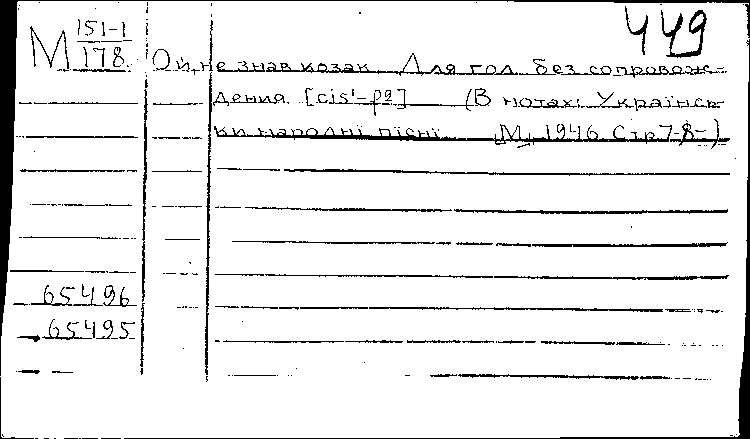 449
М 151-1
178
Ой, не знав козак. Для гол. без сопровож-
дения. [cis'-f²] (В нотах: Українсь-
ки народні пісні. М, 1946. Стр 7-8-)
65496
65495